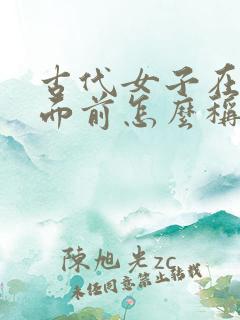 古代女子在
面前怎麼稱
陳旭光zc
未经同意禁止转载